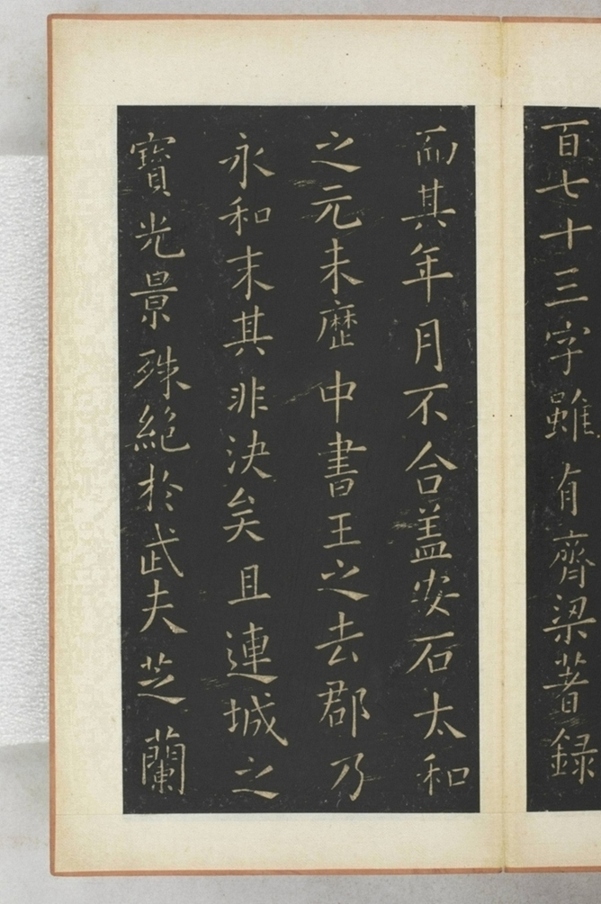 百七十三字雖有齊梁著録
而其年月不合盖安石太和
之元未歷中書王之去郡乃
永和末其非決矣且連城之
寶光景殊絕於武夫芝蘭